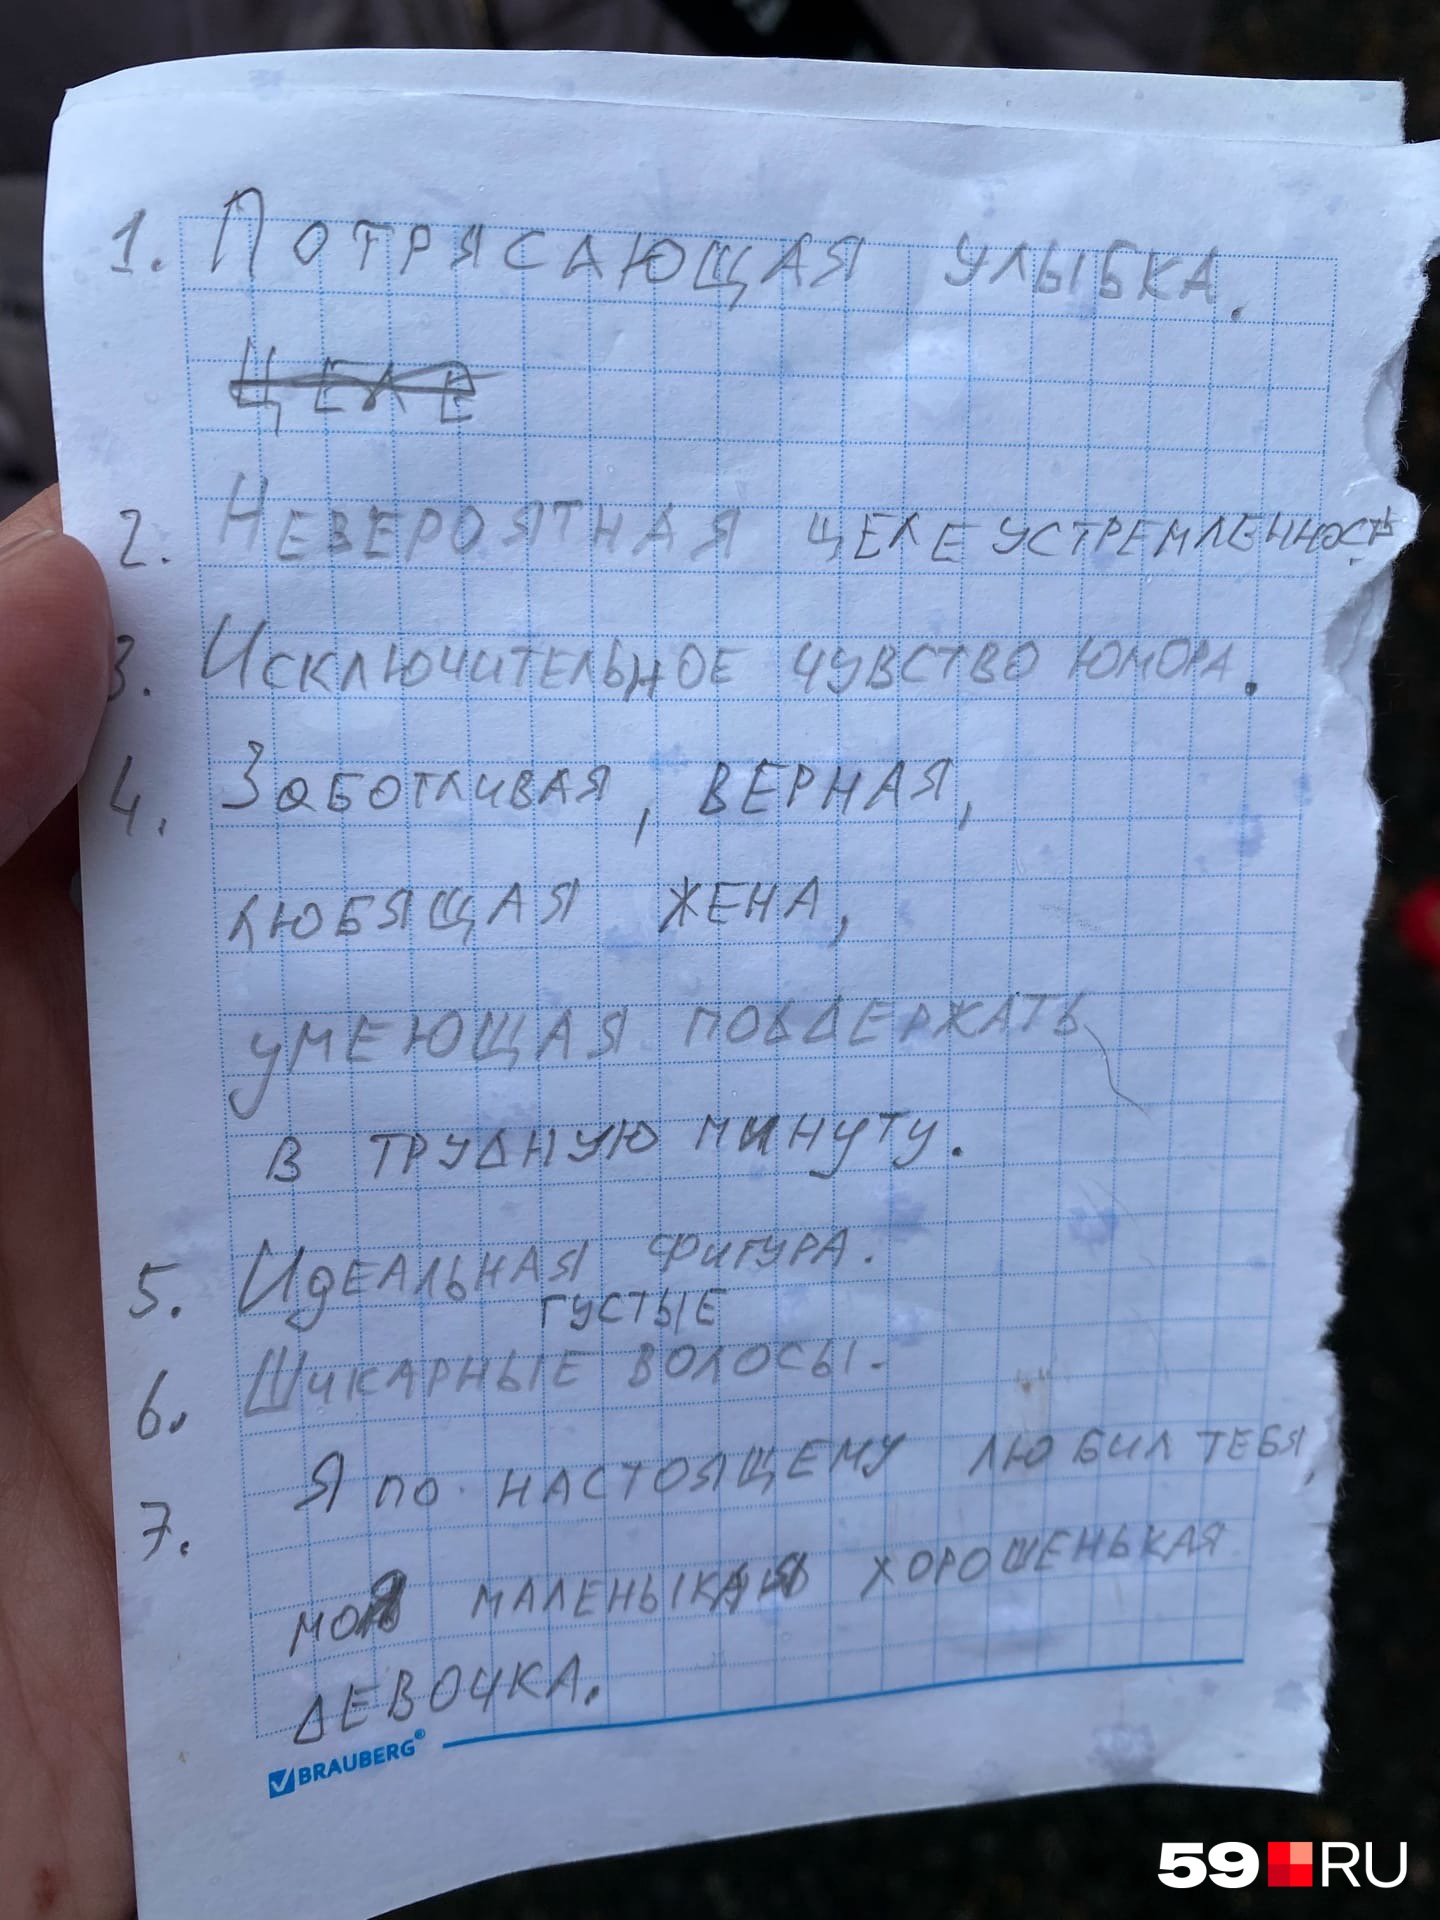 1. Потрясающая улыбка.
Целе
2. Невероятная целеустремленность.
3. Исключительное чувство юмора.
4. Заботливая, верная,
любящая жена,
умеющая поддержать
в трудную минуту.
5. Идеальная фигура.
густые
6. Шикарные волосы.
7. Я по настоящему любил тебя,
моя маленькая хорошенькая
девочка.
BRAUBERG®
59 RU